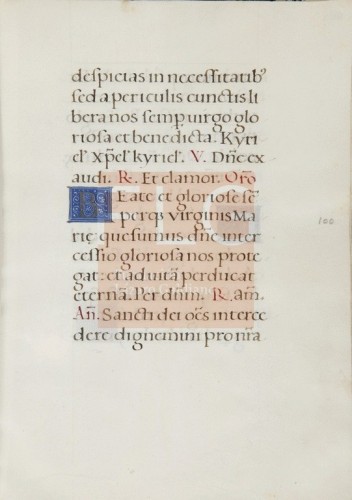 despicias in necessitatibꝰ
sed a periculis cunctis li
bera nos semp. virgo glo
riosa et benedicta. Kyri
el. Xp̄el. kyriel. V. Dn̄e ex
audi. R. Et clamor. Orō
BEate et gloriose sē
perqꝫ virginis Ma
rię quesumus dn̄e inter
cessio gloriosa nos prote
gat: et ad vitā perducat
eternā. Per dn̄m. R. am̄.
An̄. Sancti dei oēs interce
dere dignemini pro nr̄a
100